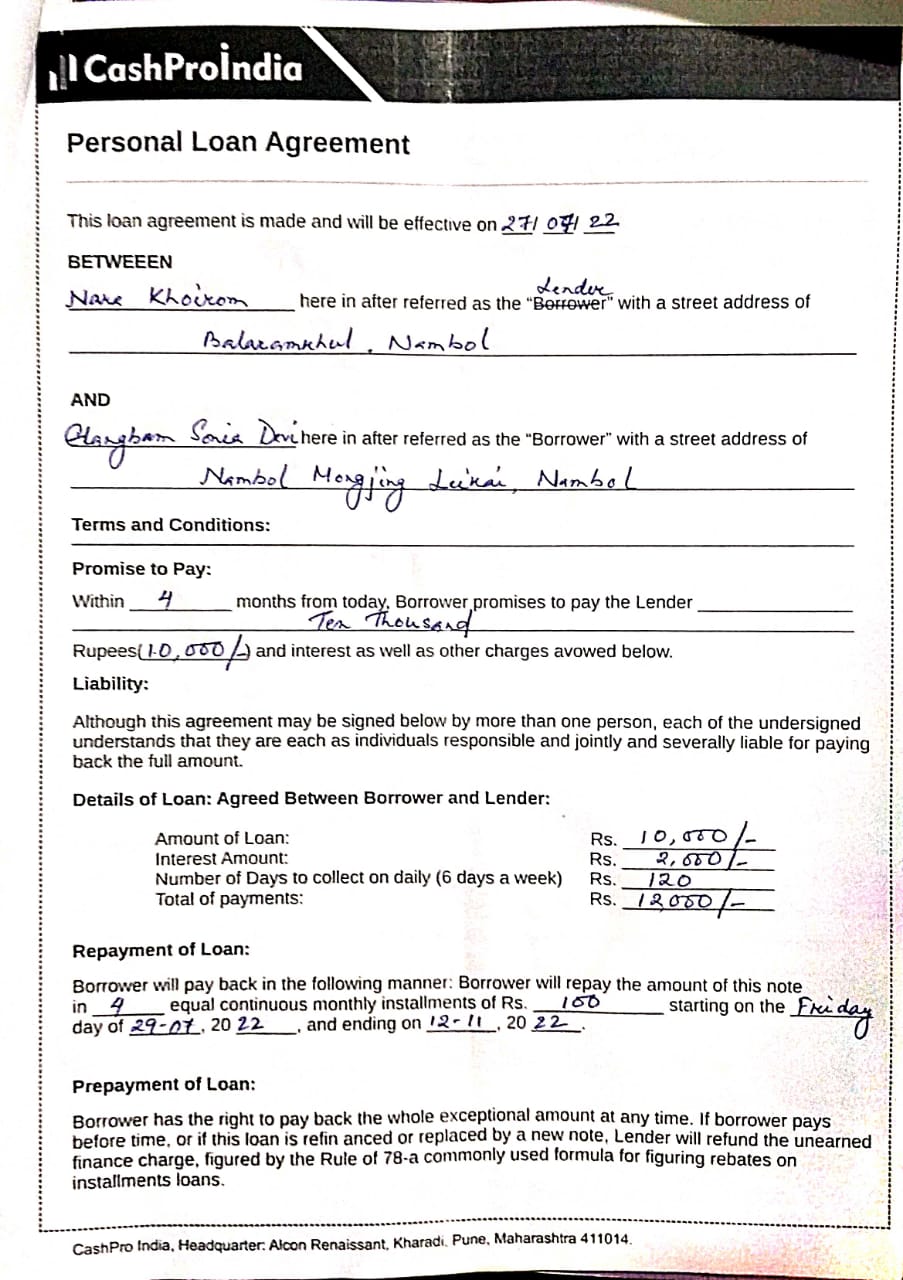 CashProIndia
Personal Loan Agreement
This loan agreement is made and will be effective on 27/ 07/ 22
BETWEEEN
Lender
Nare Khoirom here in after referred as the “Borrower” with a street address of
Balaramkhul, Nambol
AND
Olangbam Sonia Devi here in after referred as the “Borrower” with a street address of
Nambol Mongjing Leikai, Nambol
Terms and Conditions:
Promise to Pay:
Within 4 months from today, Borrower promises to pay the Lender
Ten Thousand
Rupees(10,000/-) and interest as well as other charges avowed below.
Liability:
Although this agreement may be signed below by more than one person, each of the undersigned
understands that they are each as individuals responsible and jointly and severally liable for paying
back the full amount.
Details of Loan: Agreed Between Borrower and Lender:
Amount of Loan: Rs. 10,000/-
Interest Amount: Rs. 2,000/-
Number of Days to collect on daily (6 days a week) Rs. 120
Total of payments: Rs. 12000/-
Repayment of Loan:
Borrower will pay back in the following manner: Borrower will repay the amount of this note
in 4 equal continuous monthly installments of Rs. 100 starting on the Friday
day of 29-07, 20 22, and ending on 12-11, 20 22.
Prepayment of Loan:
Borrower has the right to pay back the whole exceptional amount at any time. If borrower pays
before time, or if this loan is refin anced or replaced by a new note, Lender will refund the unearned
finance charge, figured by the Rule of 78-a commonly used formula for figuring rebates on
installments loans.
CashPro India, Headquarter: Alcon Renaissant, Kharadi, Pune, Maharashtra 411014.